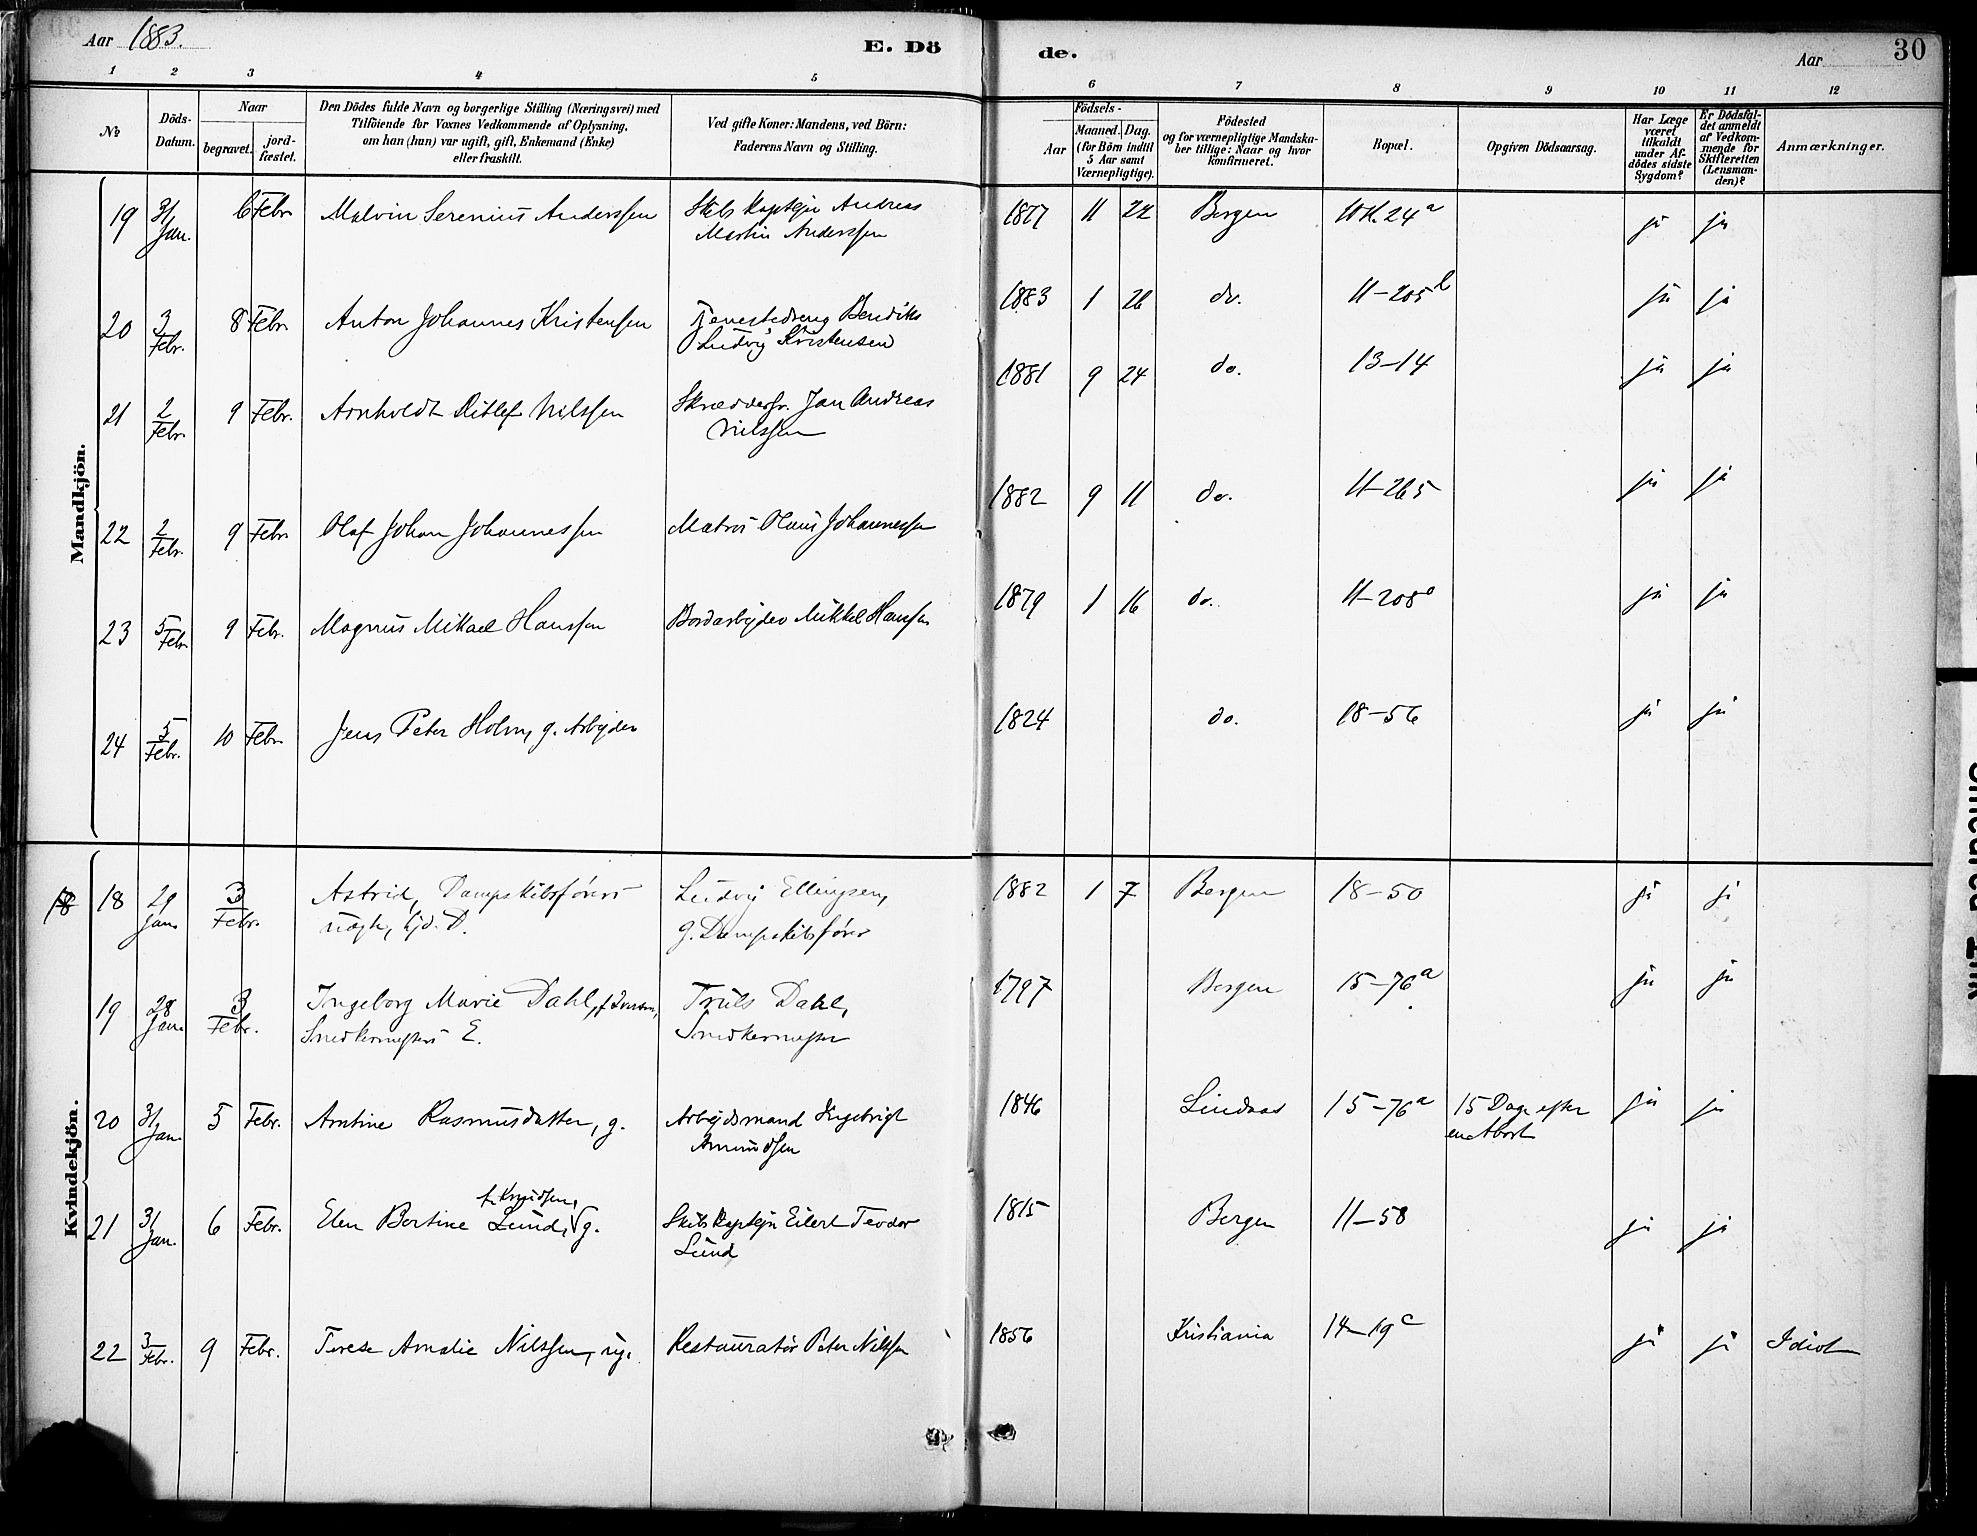 Aar 1883.
E. Dö
de.
Aar
30
1 2 3 4 5 6 7 8 9 10 11 12
№
Döds-
Datum.
Naar
begravet.
jord-
fæstet.
Den Dödes fulde Navn og borgerlige Stilling (Næringsvei) med
Tilföiende for Voxnes Vedkommende af Oplysning,
om han (hun) var ugift, gift, Enkemand (Enke)
eller fraskilt.
Ved gifte Koner: Mandens, ved Börn:
Faderens Navn og Stilling.
Födsels-
Aar
Maaned. Dag.
(for Börn indtil
5 Aar samt
Værnepligtige).
Födested
og for værnepligtige Mandska-
ber tillige: Naar og hvor
konfirmeret.
Bopæl.
Opgiven Dödsaarsag.
Har Læge
været
tilkaldt
under Af-
dödes sidste
Sygdom?
Er Dödsfal-
det anmeldt
af Vedkom-
mende for
Skifteretten
(Lensman-
den)?
Anmærkninger.
Mandkjön.
19 31/Jan. 6 Febr. Malvin Serenius Anderssen Skibskaptejn Andreas 1877 11 22 Bergen 10 K. 24a ja ja
Martin Anderssen
20 3/Febr. 8 Febr. Anton Johannes Kristensen Tjenestedreng Bendiks 1883 1 26 do. 11-205b ja ja
Ludvig Kristensen
21 2/Febr. 9 Febr. Arnholdt Ditlef Nilssen Skræddersv. Jan Andreas 1881 9 24 do. 13-14 ja ja
Nilssen
22 2/Febr. 9 Febr. Olaf Johan Johannessen Matros Olaus Johannessen 1882 9 11 do. 11-265 ja ja
23 5/Febr. 9 Febr. Magnus Mikael Hanssen Bordarbejder Mikkel Hanssen 1879 1 16 do. 11-208 ja ja
24 5/Febr. 10 Febr. Jens Peter Holm, g. Arbejder 1824 do. 18-56 ja ja
Kvindekjön.
18 18 29/Jan. 3/Febr. Astrid, Dampskibsförers Ludvig Ellingsen, 1882 1 7 Bergen 18-50 ja ja
D. g. Dampskibsförer
19 28/Jan. 3/Febr. Ingeborg Marie Dahl, Truls Dahl, 1797 Bergen 15-76a ja ja
Snedkermesters E. Snedkermester
20 31/Jan. 5 Febr. Arntine Rasmusdatter, g. Arbejdsmand Ingebrigt 1846 Lindaas 15-76a 15 Dage efter ja ja
Amundsen en Abort
21 31/Jan. 6 Febr. Elen Bertine Lund, f. Knudsen, g. Skibskaptejn Eilert Teodor 1815 Bergen 11-58 ja ja
Lund
22 3/Febr. 9 Febr. Terese Amalie Nilssen, ug. Restauratör Peter Nilssen 1856 Kristiania 14-19c ja ja Idiot